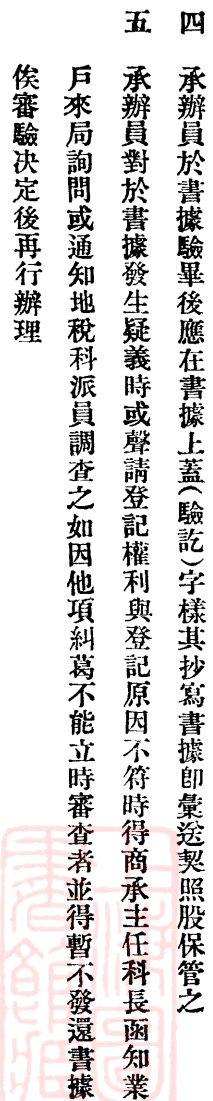 四　承辦員於書據驗畢後應在書據上蓋(驗訖)字樣其抄寫書據卽彙送契照股保管之
五　承辦員對於書據發生疑義時或聲請登記權利與登記原因不符時得商承主任科長函知業
戶來局詢問或通知地稅科派員調查之如因他項糾葛不能立時審查者並得暫不發還書據
俟審驗決定後再行辦理